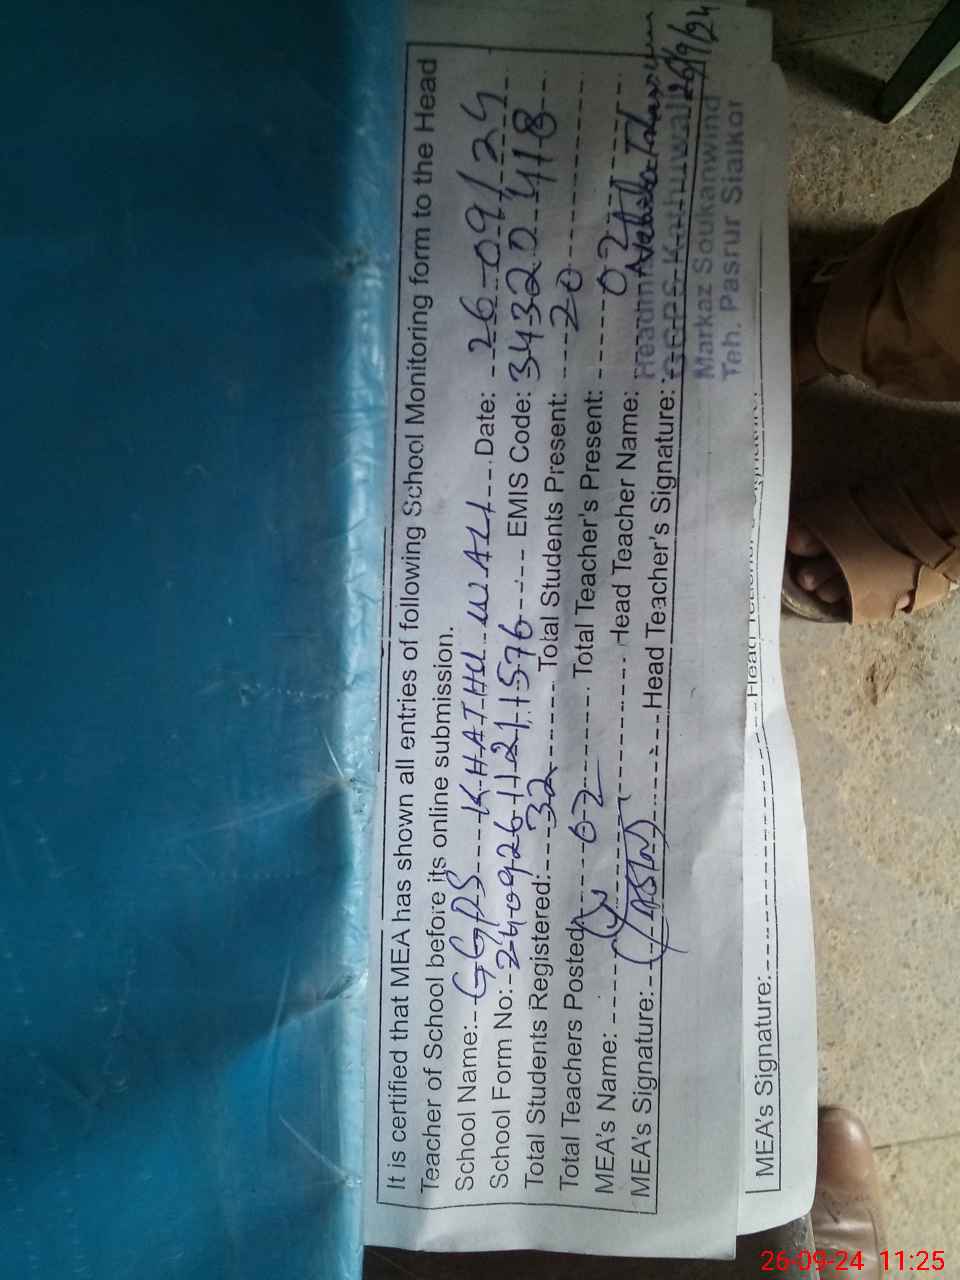 It is certified that MEA has shown all entries of following School Monitoring form to the Head
Teacher of School before its online submission.
School Name: GGPS KHATHU WALI Date: 26-09/24
School Form No: 240926 1121 1576 EMIS Code: 34320418
Total Students Registered: 32 Total Students Present: 20
Total Teachers Posted: 02 Total Teacher's Present: 02
MEA's Name: Head Teacher Name:
MEA's Signature: Head Teacher's Signature: 26/9/24
GGPS Kathuwali
Markaz Soukanwind
Teh. Pasrur Sialkot
MEA's Signature:
26-09-24 11:25